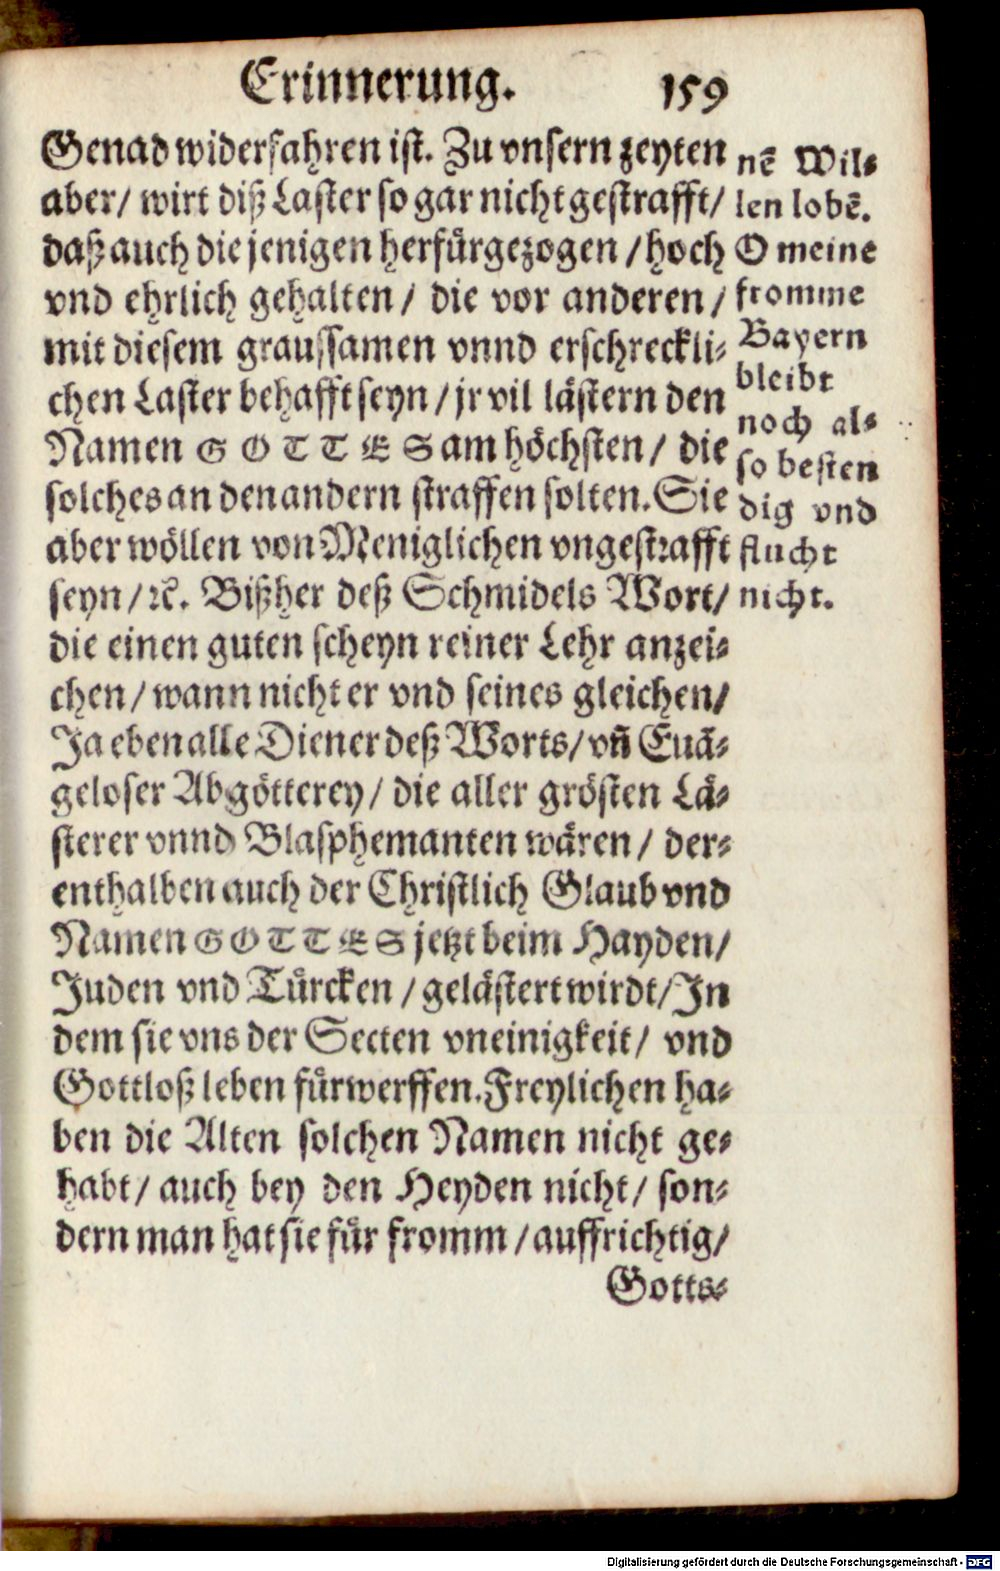 Erinnerung. 159
Genad widerfahren ist. Zu vnsern zeyten
aber/ wirt diß Laster so gar nicht gestrafft/
daß auch die jenigen herfürgezogen / hoch
vnd ehrlich gehalten/ die vor anderen/
mit diesem graussamen vnnd erschreckli-
chen Laster behafft seyn / jr vil lästern den
Namen GOTTES am höchsten/ die
solches an den andern straffen solten. Sie
aber wöllen von Meniglichen vngestrafft
seyn / ꝛc. Bißher deß Schmidels Wort/
die einen guten scheyn reiner Lehr anzei-
chen / wann nicht er vnd seines gleichen/
Ja eben alle Diener deß Worts/ vñ Euā-
geloser Abgötterey/ die aller grösten Lä-
sterer vnnd Blasphemanten wären/ der-
enthalben auch der Christlich Glaub vnd
Namen GOTTES jetzt beim Hayden/
Juden vnd Türcken / gelästert wirdt/ In
dem sie vns der Secten vneinigkeit/ vnd
Gottloß leben fürwerffen. Freylichen ha-
ben die Alten solchen Namen nicht ge-
habt/ auch bey den Heyden nicht/ son-
dern man hat sie für fromm / auffrichtig/
Gotts-
nē Wil-
len lobē.
O meine
fromme
Bayern
bleibt
noch al-
so besten
dig vnd
flucht
nicht.
Digitalisierung gefördert durch die Deutsche Forschungsgemeinschaft - DFG